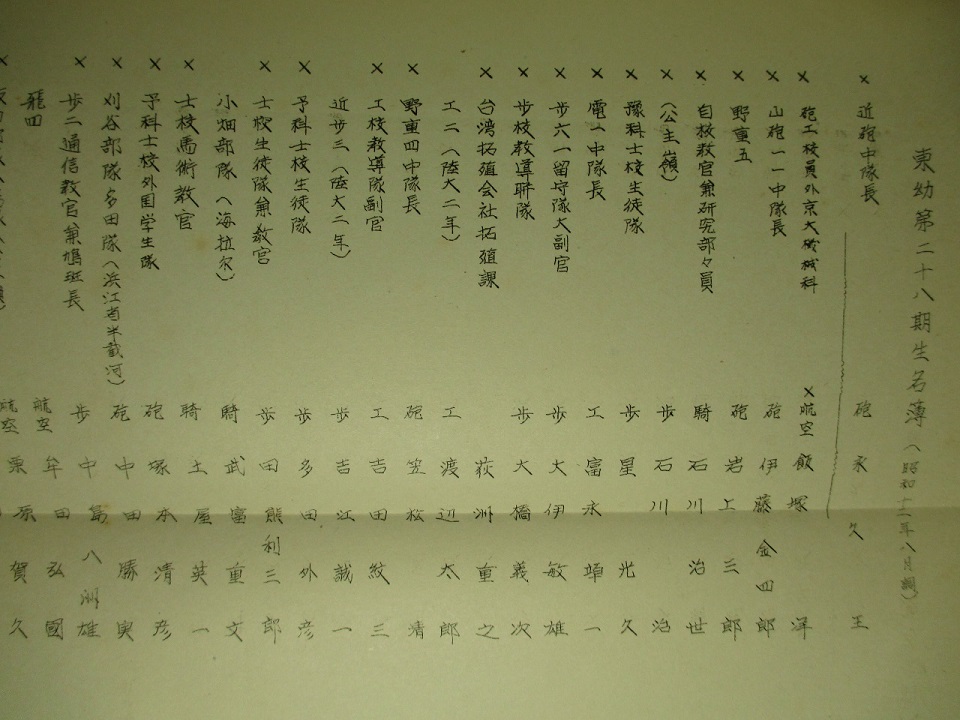 東幼第二十八期生名薄(昭和十二年八月調)
× 近砲中隊長 砲 永久王
× 砲工校員外京大機械科 × 航空 飯塚洋
× 山砲一一中隊長 砲 伊藤金四郎
× 野重五 砲 岩上三郎
× 自校教官兼研究部々員 騎 石川治世
× (公主嶺) 歩 石川治
× 豫科士校生徒隊 歩 星光久
× 電一中隊長 工 富永一
× 歩六一留守隊大副官 歩 大伊敏雄
× 歩校教導聯隊 歩 大橋義次
× 台湾拓殖会社拓殖課 荻洲重之
工二(陸大二年) 工 渡辺太郎
× 野重四中隊長 砲 笠松清
× 工校教導隊副官 工 吉田紋三
近歩三(陸大二年) 歩 吉江誠一
× 予科士校生徒隊 歩 多田外彦
× 士校生徒隊兼教官 歩 田熊利三郎
小畑部隊(海拉尔) 騎 武富重文
× 士校馬術教官 騎 土屋英一
× 予科士校外国学生隊 砲 塚本清彦
× 刈谷部隊多田隊(浜江省半截河) 砲 中田勝実
× 歩二通信教官兼鳩班長 歩 中島八洲雄
龍四 航空 牟田弘國
× 航空 栗原賀久